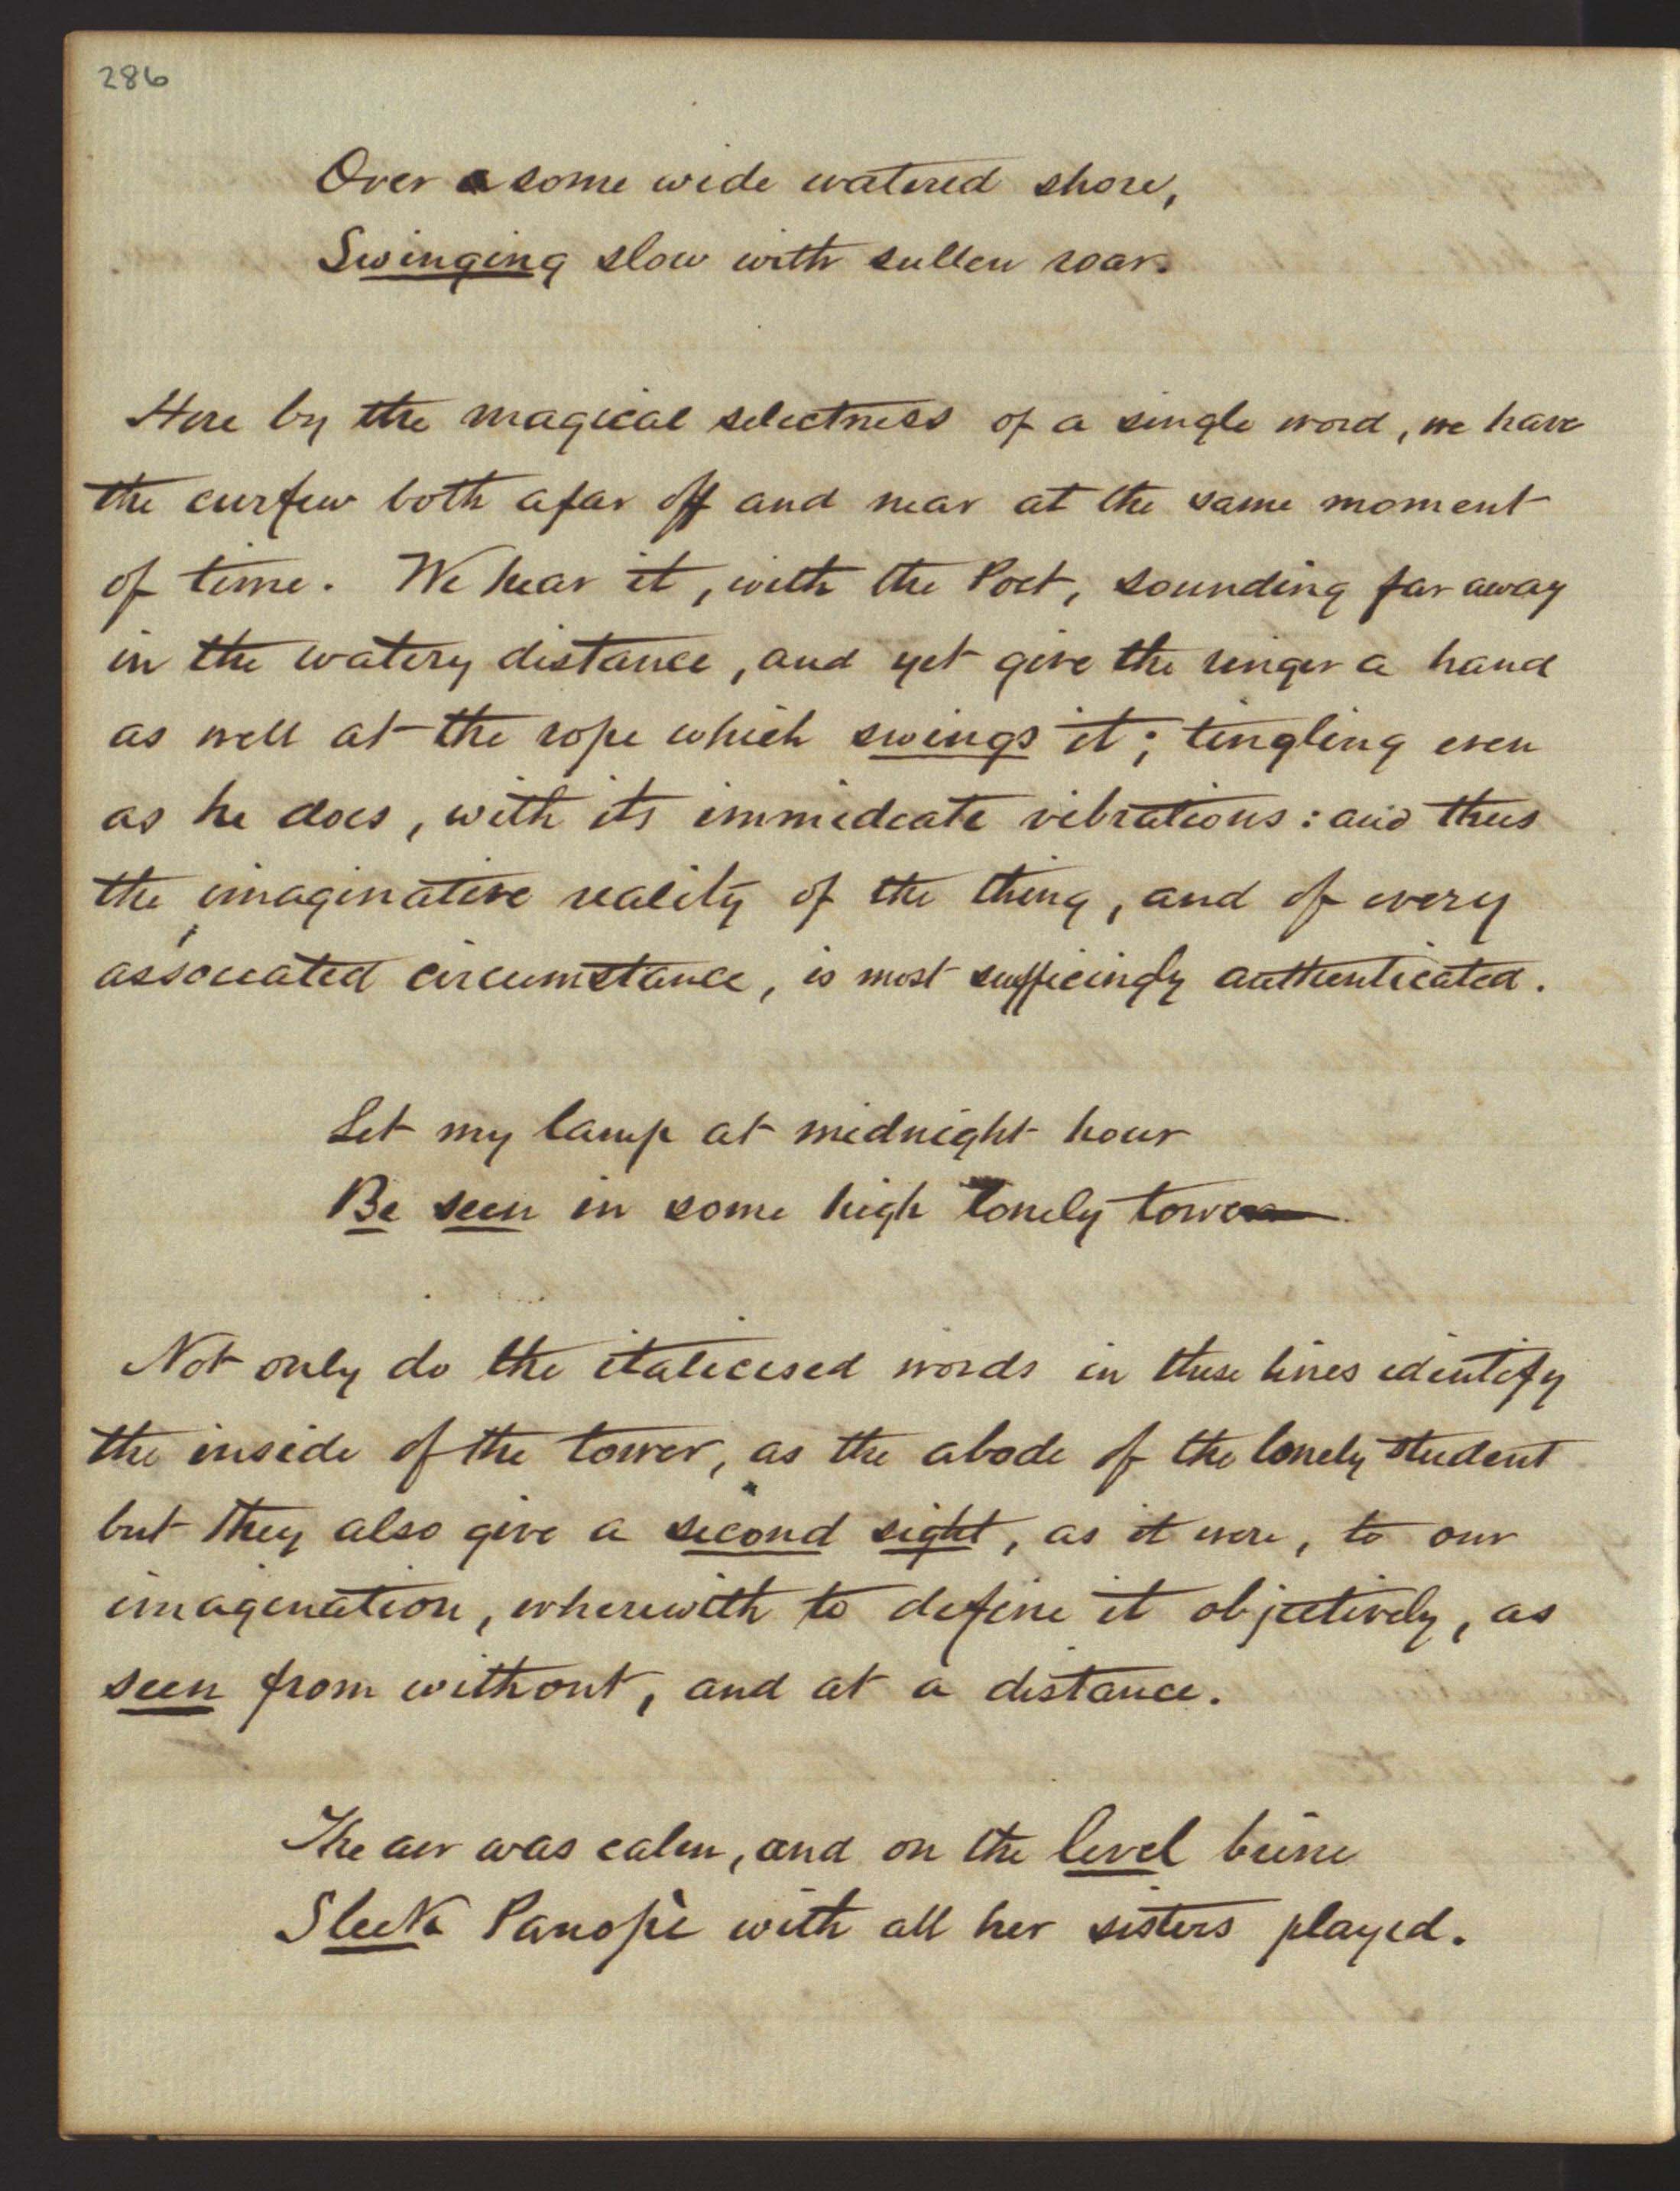 286
Over some wide watered shore,
Swinging slow with sullen roar.
Here by the magical selectness of a single word, we have
the curfew both afar off and near at the same moment
of time. We hear it, with the Poet, sounding far away
in the watery distance, and yet give the ringer a hand
as well at the rope which swings it; tingling even
as he does, with its immediate vibrations: and thus
the imaginative reality of the thing, and of every
associated circumstance, is most sufficingly authenticated.
Let my lamp at midnight hour
Be seen in some high lonely tower
Not only do the italicised words in these lines identify
the inside of the tower, as the abode of the lonely student
but they also give a second sight, as it were, to our
imagination, wherewith to define it objectively, as
seen from without, and at a distance.
The air was calm, and on the level brine
Sleek Panopè with all her sisters played.